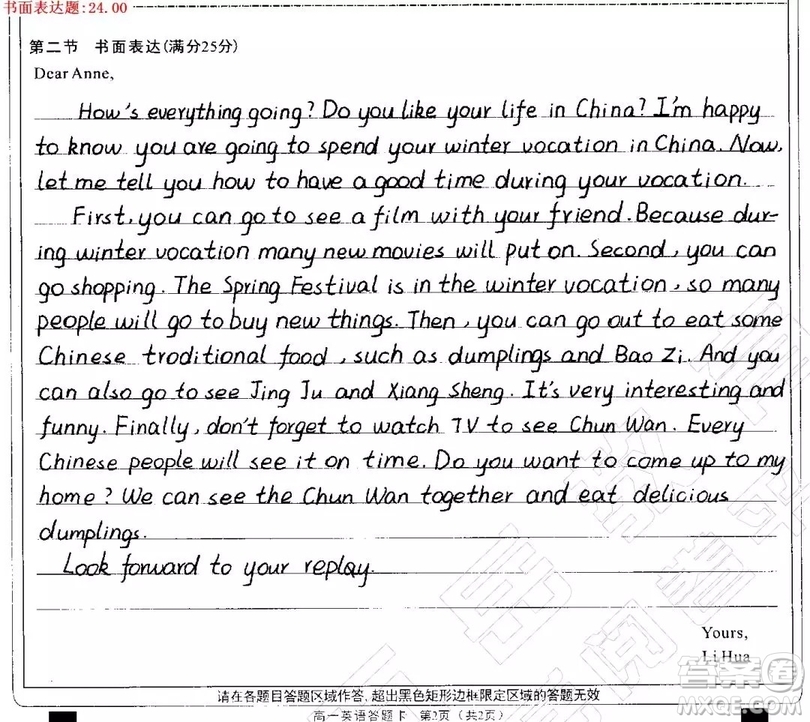 书面表达题:24.00
第二节 书面表达(满分25分)
Dear Anne,
How's everything going? Do you like your life in China? I'm happy
to know you are going to spend your winter vocation in China. Now,
let me tell you how to have a good time during your vocation.
First, you can go to see a film with your friend. Because dur-
ing winter vocation many new movies will put on. Second, you can
go shopping. The Spring Festival is in the winter vocation, so many
people will go to buy new things. Then, you can go out to eat some
Chinese troditional food, such as dumplings and Bao Zi. And you
can also go to see Jing Ju and Xiang Sheng. It's very interesting and
funny. Finally, don't forget to watch TV to see Chun Wan. Every
Chinese people will see it on time. Do you want to come up to my
home? We can see the Chun Wan together and eat delicious
dumplings.
Look forward to your replay.
Yours,
Li Hua
请在各题目答题区域作答,超出黑色矩形边框限定区域的答题无效
高一英语答题卡 第2页(共2页)
答案圈
MXQE.COM